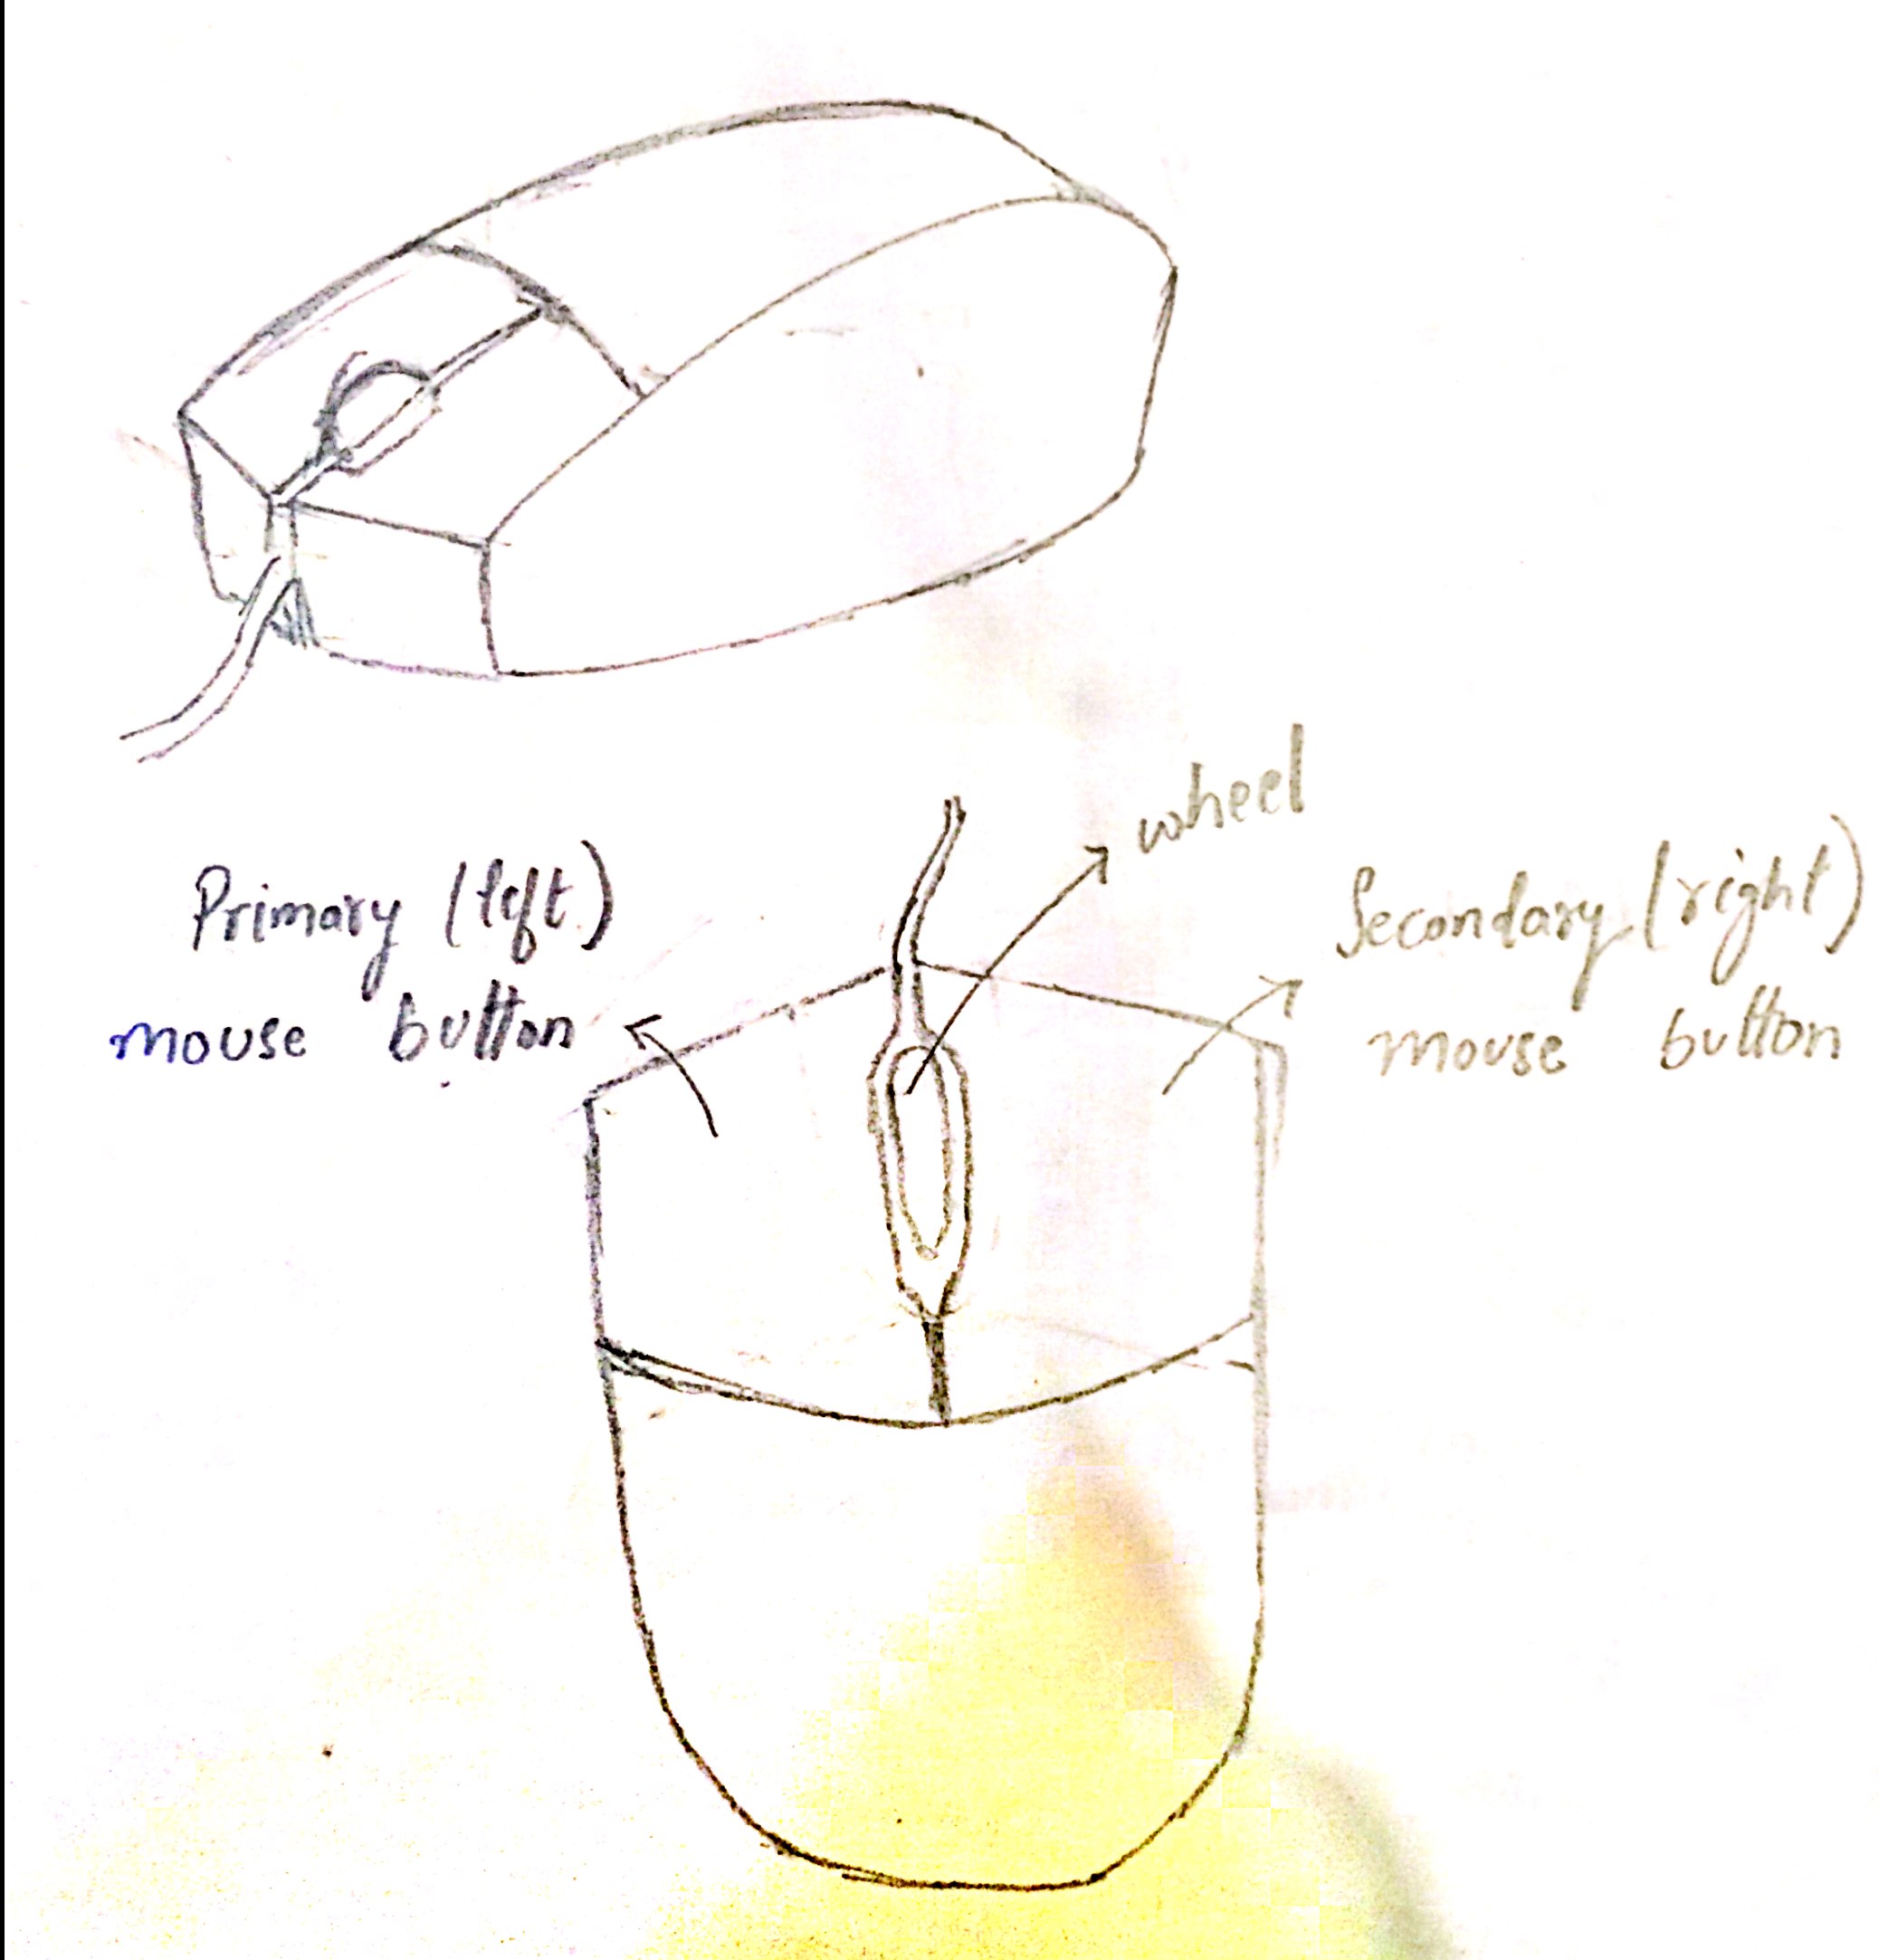 wheel
Primary (left)
mouse button
Secondary (right)
mouse button